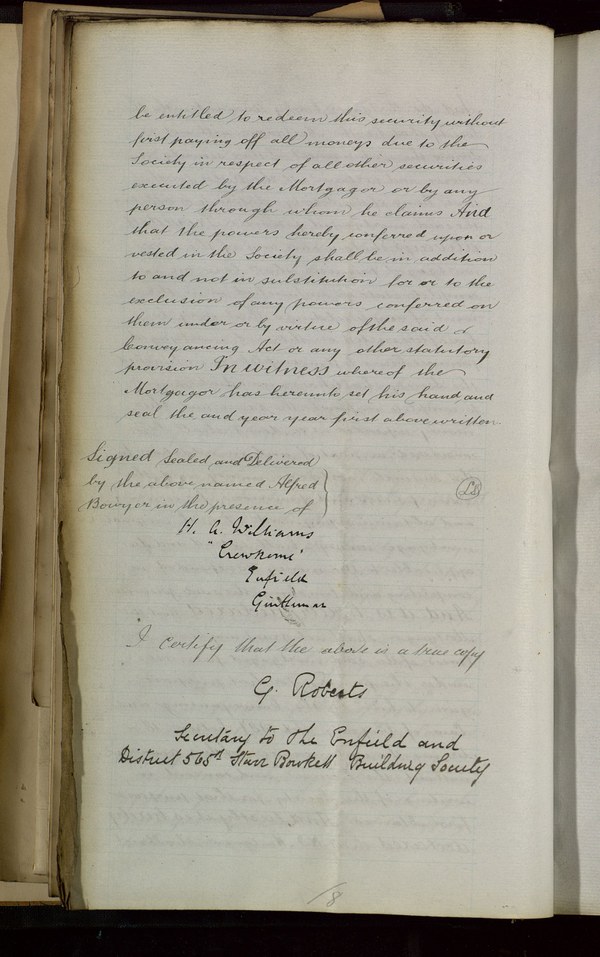 be entitled to redeem this security without
first paying off all moneys due to the
Society in respect of all other securities
executed by the Mortgagor or by any
person through whom he claims And
that the powers hereby conferred upon or
vested in the Society shall be in addition
to and not in substitution for or to the
exclusion of any powers conferred on
them under or by virtue of the said
Conveyancing Act or any other statutory
provision In witness whereof the
Mortgagor has hereunto set his hand and
seal the and year year first above written
Signed Sealed and Delivered
by the above named Alfred
Bowyer in the presence of
LS
H. A. Williams
"Crewkerne"
Enfield
Gentleman
I certify that the above is a true copy
G. Roberts
Secretary to the Enfield and
District 565th Starr Bowkett Building Society